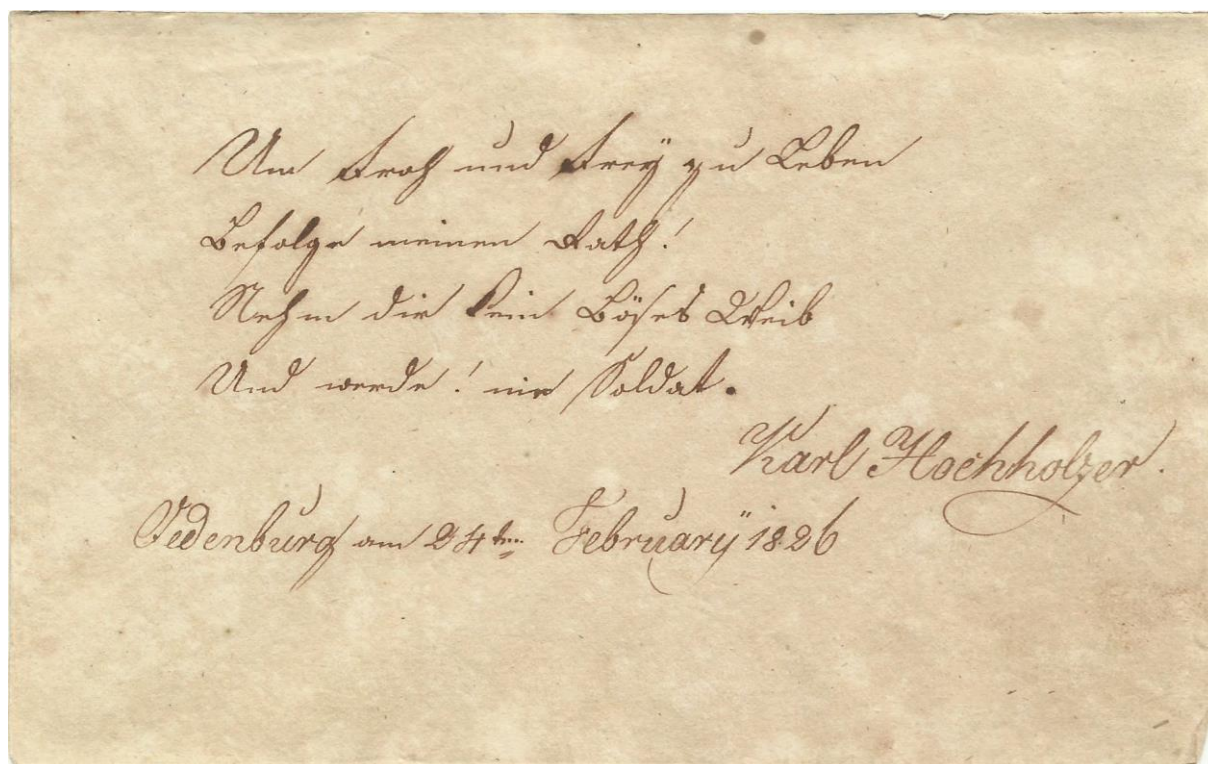 Um Froh und Freÿ zu Leben
Befolge meinen Rath!
Nehm dir kein Böses Weib
Und werde! nie Soldat.
Karl Hochholzer.
Oedenburg am 24ten Februarÿ 1826